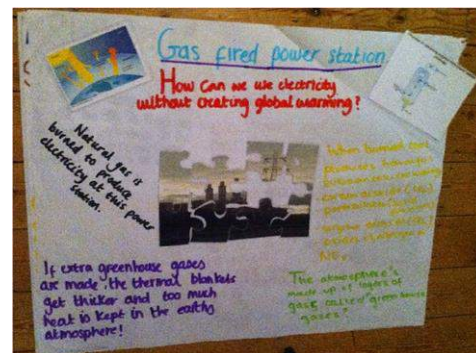 Gas fired power station
How can we use electricity
without creating global warming?
Natural gas is
burned to produce
electricity at this power
station.
When burned
produces
carbon dioxide
If extra greenhouse gases
are made the thermal blankets
get thicker and too much
heat is kept in the earths
atmosphere!
The atmosphere's
made up of layers of
gases called 'greenhouse
gases'